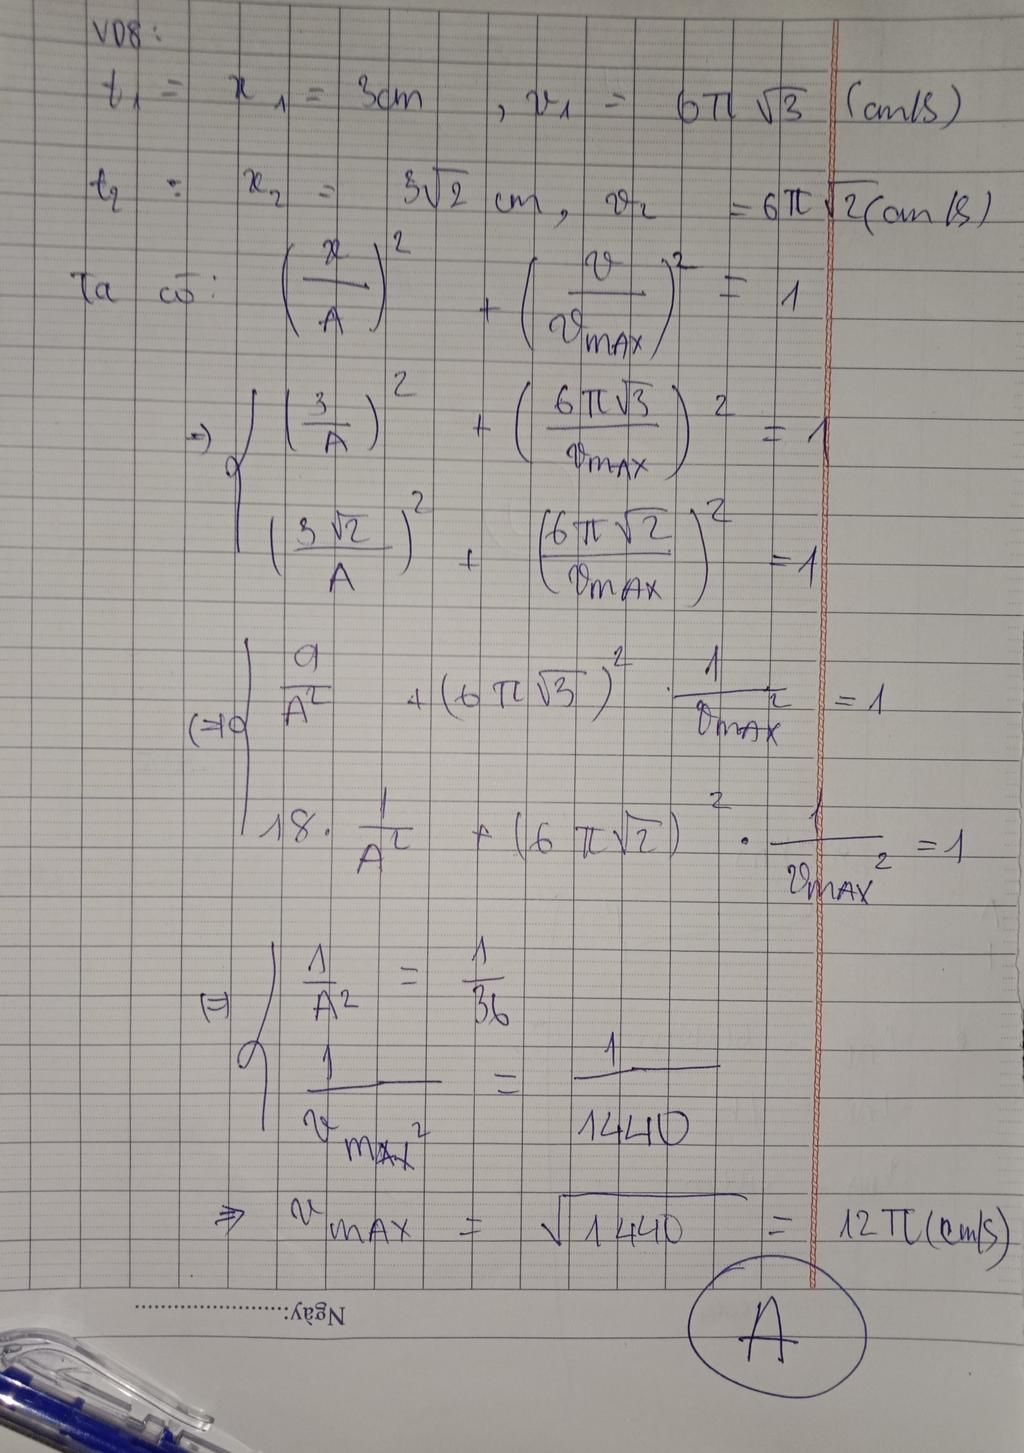 VD8:
t₁ = x₁ = 3cm , v₁ = 6π√3 (cm/s)
t₂ : x₂ = 3√2 cm, v₂ = 6π√2 (cm/s)
Ta có: (x/A)² + (v/vMAX)² = 1
=> { (3/A)² + (6π√3/vMAX)² = 1
(3√2/A)² + (6π√2/vMAX)² = 1
(=) { 9/A² + (6π√3)² . 1/vMAX² = 1
18 . 1/A² + (6π√2)² . 1/vMAX² = 1
(=) { 1/A² = 1/36
1/vMAX² = 1/1440
=> vMAX = √1440 = 12π (cm/s)
A
Ngày:........................